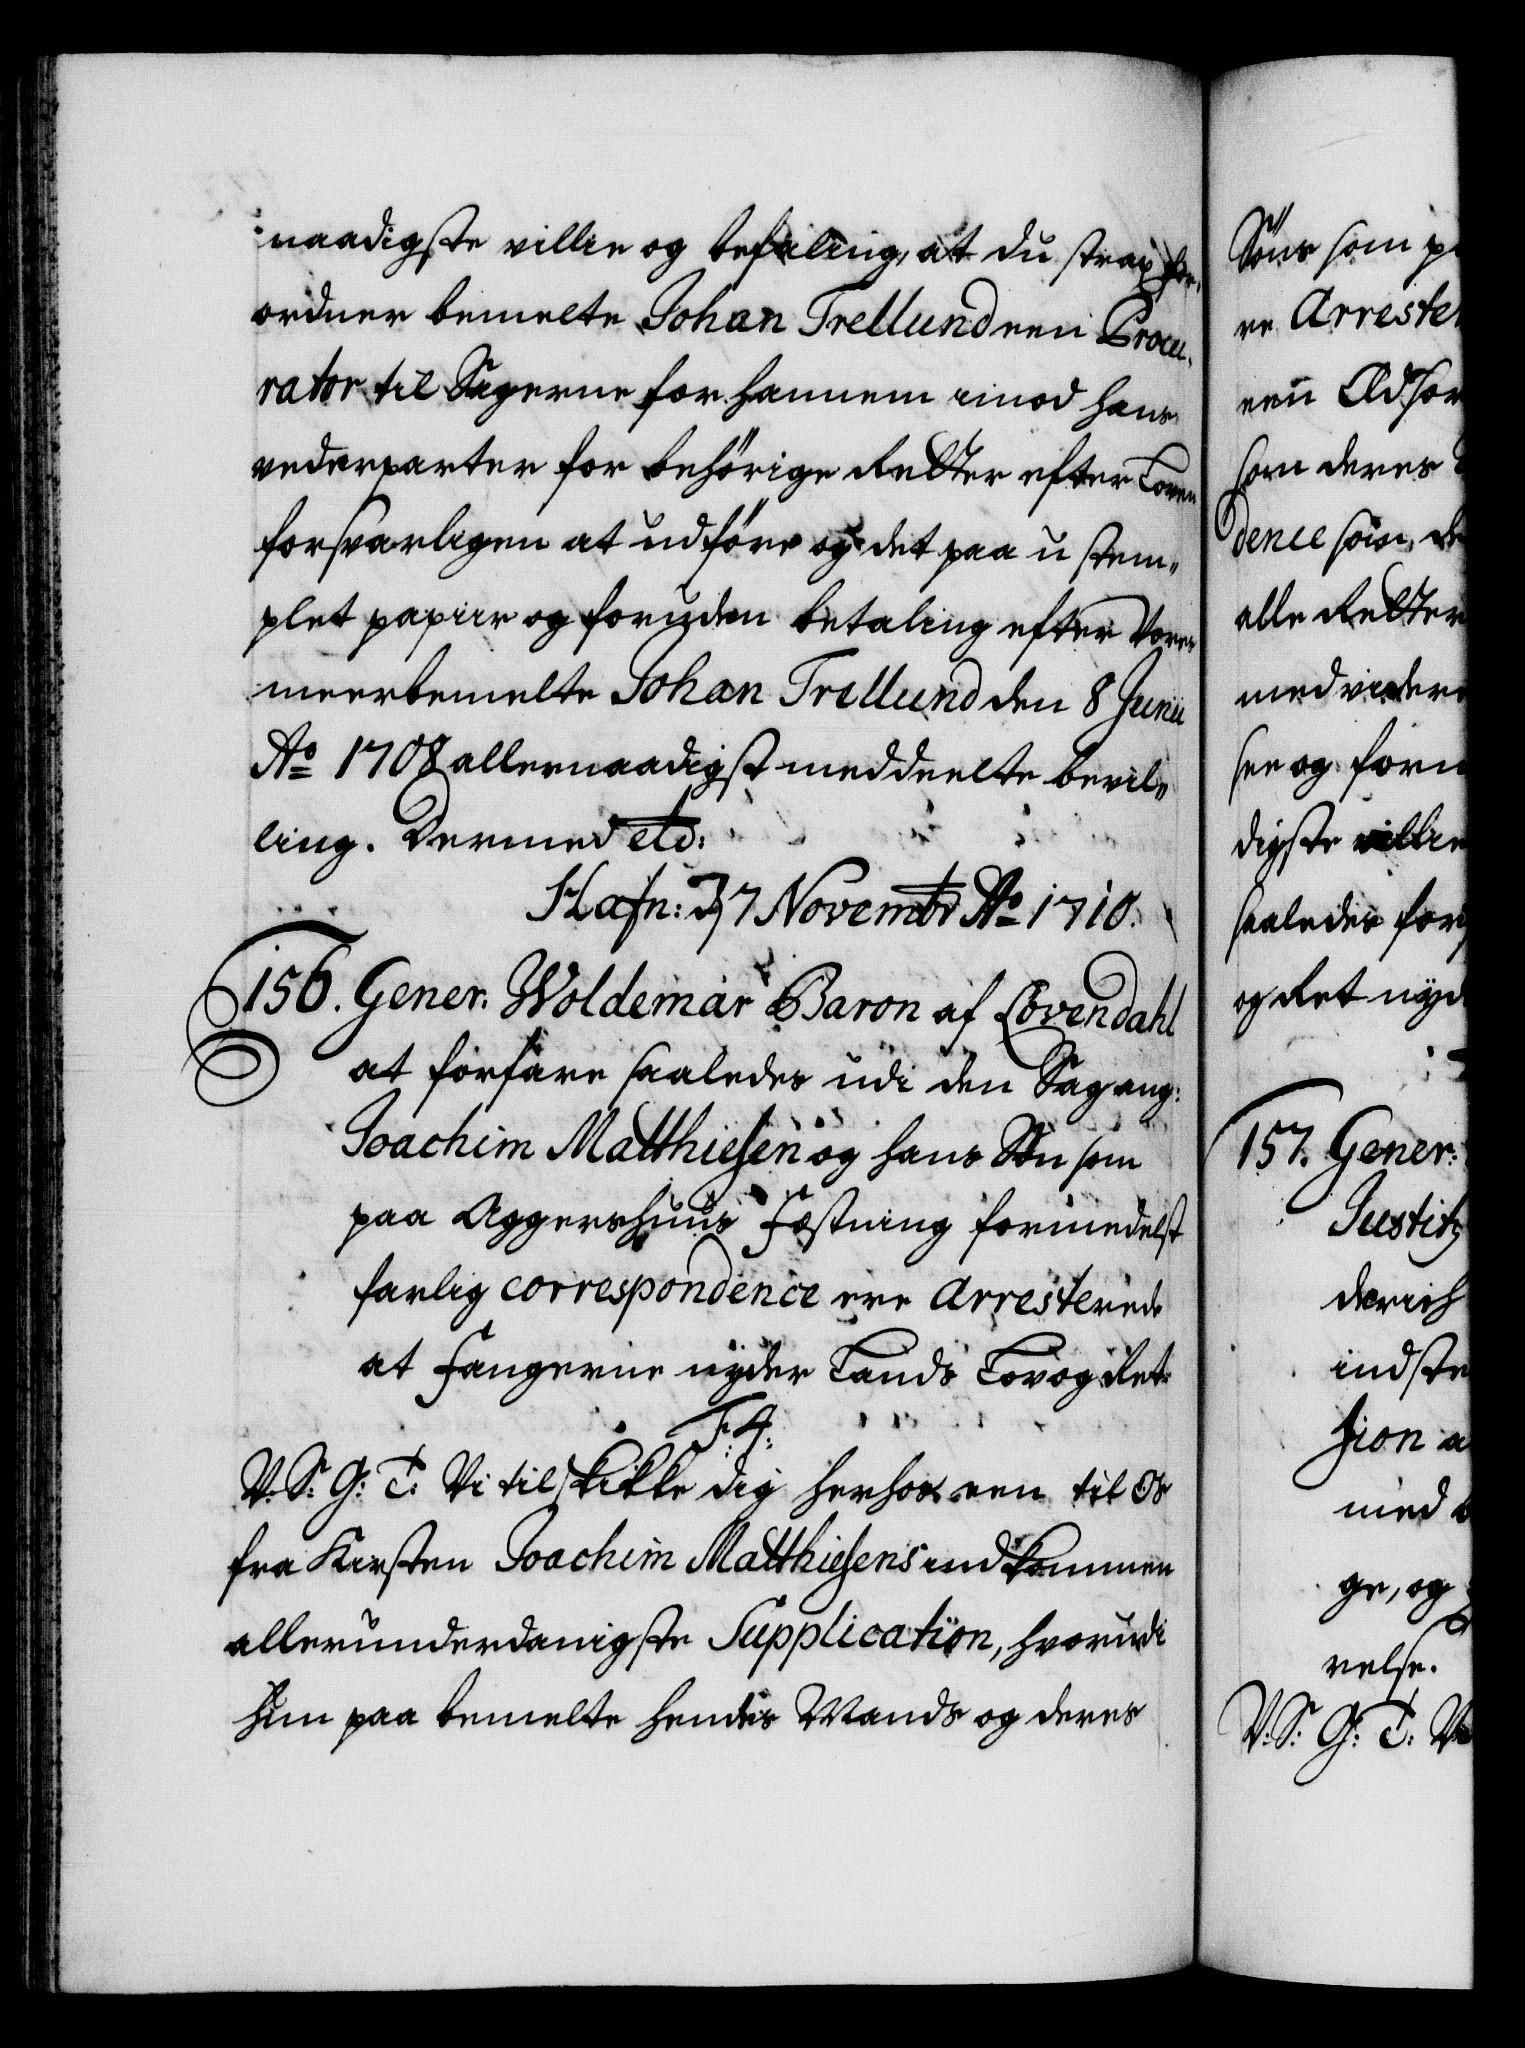 naadigste villie og befaling, at du strax for-
ordner bemelte Johan Trellund een Procu-
rator til Sagerne for hannem imod hans
vederparter for behörige Retter efter Loven
forsvarligen at udföre og det paa u stem-
plet papiir og foruden betaling efter Vores
meerbemelte Johan Trellund den 8 Junii
Ao 1708 allernaadigst meddeelte bevil-
ling. Dermed etc:
Hafn: D 7 Novembr Ao 1710.
156. Gener. Woldemar Baron af Lövendahl
at forfare saaledes udi den Sag ang:
Joachim Matthiesen og hans Sön som
paa Aggershuus Fæstning formedelst
farlig correspondence ere Arresterede
at Fangerne nyder Lands Lov og Ret.
F. 4.
V. S. G: T: Vi tilskikke dig herhos een til Os
fra Kirsten Joachim Matthiesens indkommen
allerunderdanigste Supplication, hvorudi
hun paa bemelte hendes Mands og deres
Söns som pa
re Arrester
een Ædsor
som deres
dence som de
alle Retter
med videre
see og forn
digste villie
saaledes for
og Ret nyd
157. Gener:
Justitz
derich
indste
sion a
med
ge, og
relse.
V. S: G: T: Vi